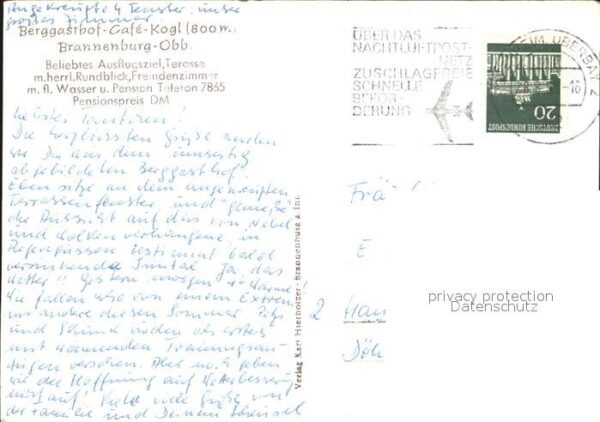 Angekreuzte 4 Fenster, unser
großes Zimmer
Berggasthof-Café-Kogl (800 m)
Brannenburg-Obb.
Beliebtes Ausflugsziel, Terasse
m. herrl. Rundblick, Fremdenzimmer
m. fl. Wasser u. Pension Telefon 7865
Pensionspreis DM
Liebstes Tantilein!
Die Grüße senden
wir Dir aus dem umseitig
abgebildeten Berggasthof.
Eben sitze an dem angekreuzten
Terrassenfenster, und "genieße"
die Aussicht auf das von Nebel
und Wolken verhangene, in
Regengüssen bald
versinkende Inntal. Ja, das
Wetter!! Gestern morgen 4° Wärme!
Wir fallen von einem Extrem
ins andere diesen Sommer.
und werden als erstes
mit wärmenden Trainingsan-
zügen versehen. Aber noch geben
wir die Hoffnung auf Wetterbesserung
nicht auf! Viele viele Grüße von
der Familie und Deinem
Verlag Karl Hierholzer - Brannenburg a. Inn
ÜBER DAS
NACHTLUFTPOST-
NETZ
ZUSCHLAGFREIE
SCHNELLE
BEFÖR-
DERUNG
EIM, ÜBERBAY 2
-16
20
DEUTSCHE BUNDESPOST
Frä
E
2 Han
Döh
privacy protection
Datenschutz